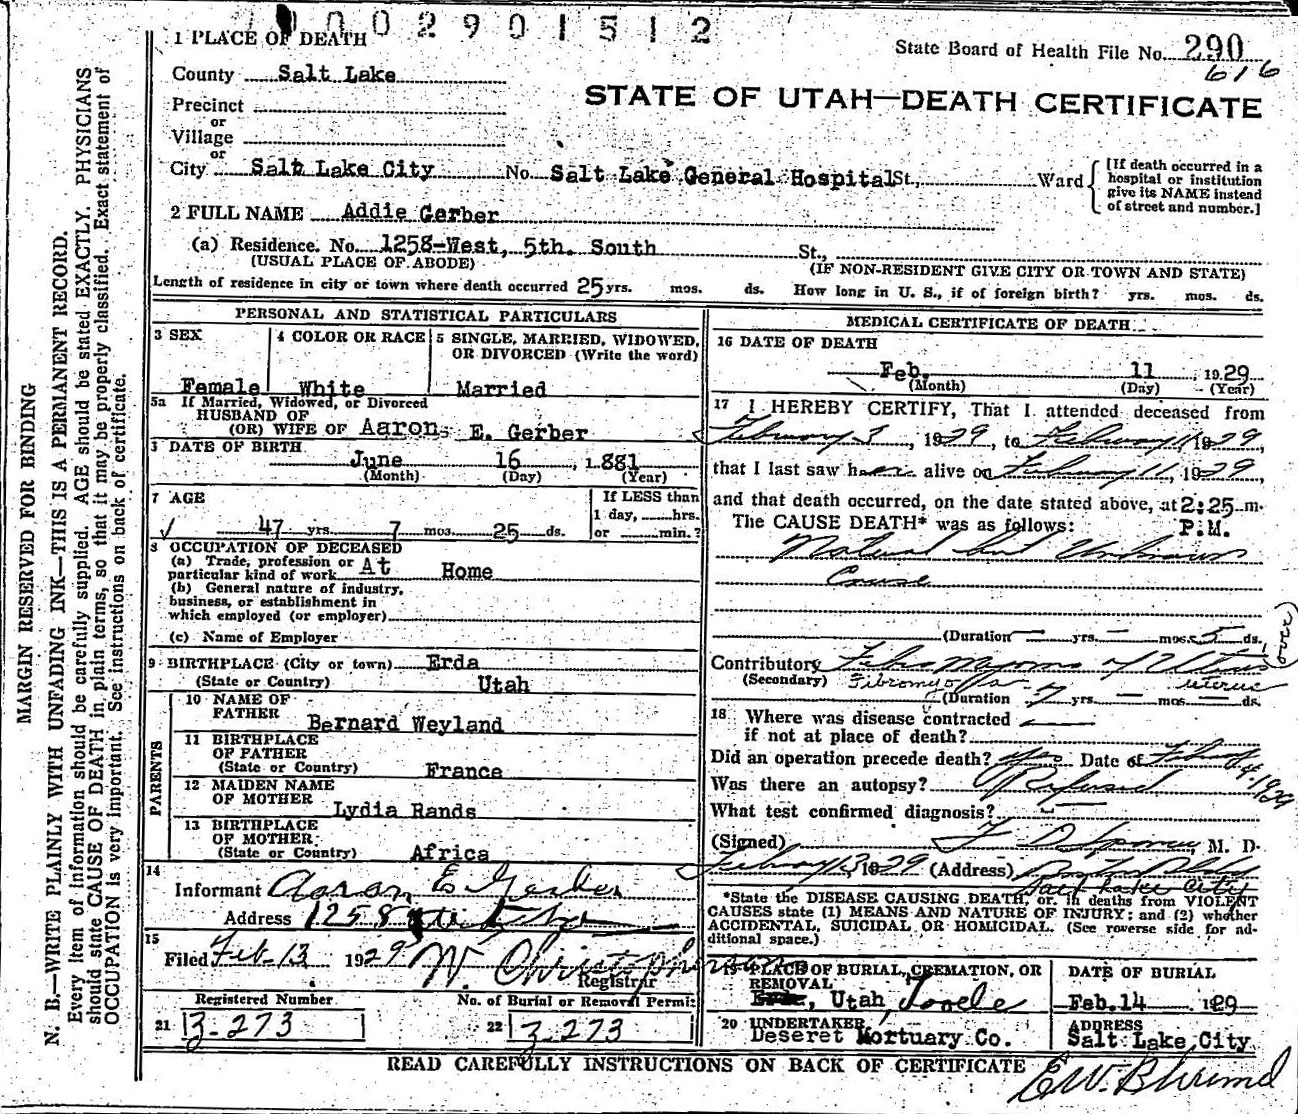 0002901512
1 PLACE OF DEATH
State Board of Health File No. 290
616
County Salt Lake
STATE OF UTAH—DEATH CERTIFICATE
Precinct
or
Village
or
City Salt Lake City No. Salt Lake General Hospital St., Ward
[If death occurred in a hospital or institution give its NAME instead of street and number.]
2 FULL NAME Addie Gerber
(a) Residence. No. 1258-West, 5th. South St.,
(USUAL PLACE OF ABODE) (IF NON-RESIDENT GIVE CITY OR TOWN AND STATE)
Length of residence in city or town where death occurred 25 yrs. mos. ds. How long in U. S., if of foreign birth? yrs. mos. ds.
PERSONAL AND STATISTICAL PARTICULARS
3 SEX 4 COLOR OR RACE 5 SINGLE, MARRIED, WIDOWED, OR DIVORCED (Write the word)
Female White Married
5a If Married, Widowed, or Divorced
HUSBAND OF
(OR) WIFE OF Aaron E. Gerber
DATE OF BIRTH
June 16, 1881
(Month) (Day) (Year)
7 AGE If LESS than
1 day, hrs.
47 yrs. 7 mos. 25 ds. or min.?
8 OCCUPATION OF DECEASED
(a) Trade, profession or
particular kind of work At Home
(b) General nature of industry,
business, or establishment in
which employed (or employer)
(c) Name of Employer
9 BIRTHPLACE (City or town) Erda
(State or Country) Utah
PARENTS
10 NAME OF
FATHER Bernard Weyland
11 BIRTHPLACE
OF FATHER
(State or Country) France
12 MAIDEN NAME
OF MOTHER Lydia Rands
13 BIRTHPLACE
OF MOTHER
(State or Country) Africa
14
Informant Aaron E Gerber
Address 1258
15
Filed Feb 13 1929 W. Christopherson
Registrar
Registered Number No. of Burial or Removal Permit
21 3-273 22 3-273
MEDICAL CERTIFICATE OF DEATH
16 DATE OF DEATH
Feb. 11, 1929
(Month) (Day) (Year)
17 I HEREBY CERTIFY, That I attended deceased from
February 3, 1929, to February 11 1929,
that I last saw her alive on February 11, 1929,
and that death occurred, on the date stated above, at 2:25 m.
The CAUSE DEATH* was as follows: P.M.
Natural but Unknown
Cause
(Duration — yrs. — mos. 5 ds.
(over)
Contributory Fibro Myoma of Uterus
(Secondary) Fibromyoma uterus
(Duration 7 yrs. — mos. — ds.
18 Where was disease contracted
if not at place of death?
Did an operation precede death? yes Date of Feby 4-1929
Was there an autopsy? Refused
What test confirmed diagnosis?
(Signed) M. D.
February 13, 1929 (Address)
Salt Lake City
*State the DISEASE CAUSING DEATH, or, in deaths from VIOLENT
CAUSES state (1) MEANS AND NATURE OF INJURY; and (2) whether
ACCIDENTAL, SUICIDAL OR HOMICIDAL. (See reverse side for ad-
ditional space.)
19 PLACE OF BURIAL, CREMATION, OR REMOVAL DATE OF BURIAL
Erda, Utah, Tooele Feb.14 1929
20 UNDERTAKER ADDRESS
Deseret Mortuary Co. Salt Lake City
READ CAREFULLY INSTRUCTIONS ON BACK OF CERTIFICATE
MARGIN RESERVED FOR BINDING
N. B.—WRITE PLAINLY WITH UNFADING INK—THIS IS A PERMANENT RECORD.
Every item of information should be carefully supplied. AGE should be stated EXACTLY. PHYSICIANS
should state CAUSE OF DEATH in plain terms, so that it may be properly classified. Exact statement of
OCCUPATION is very important. See instructions on back of certificate.